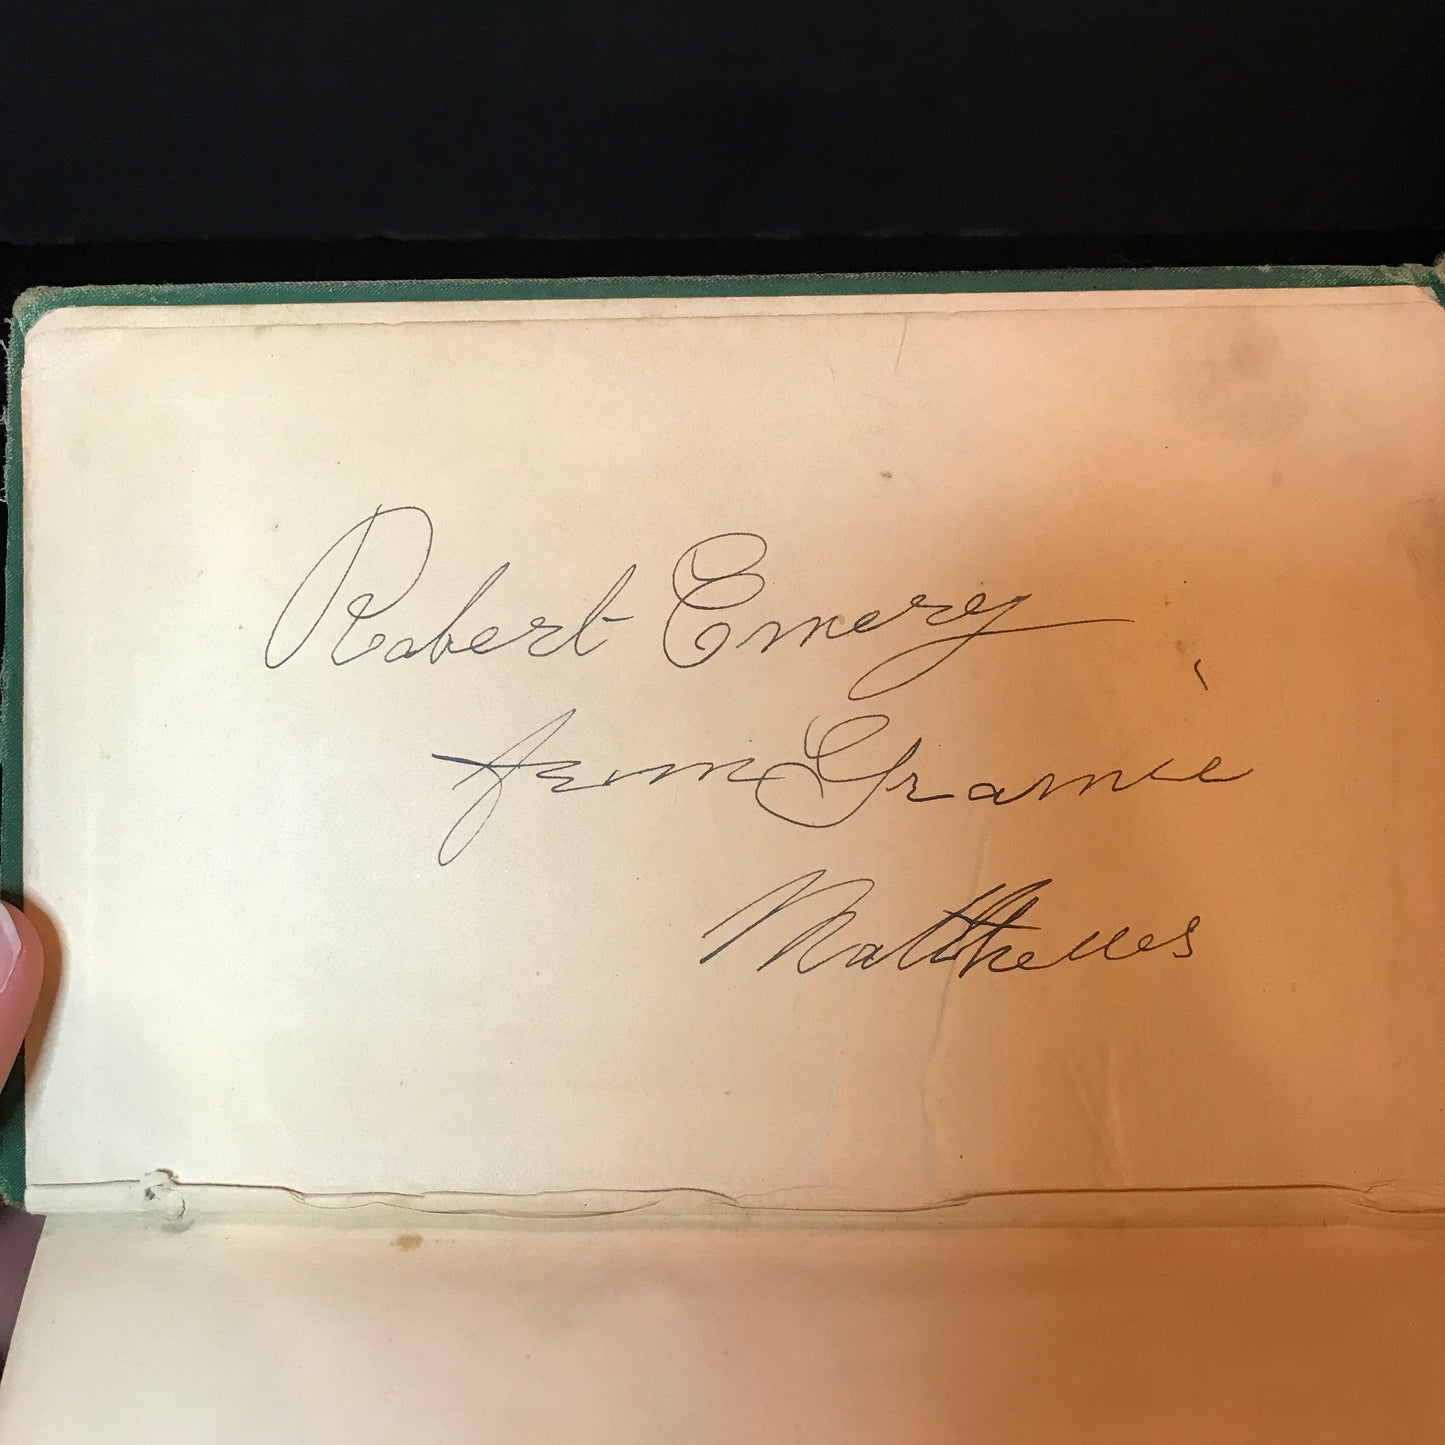 Robert Emery
from Gramie
Matthews